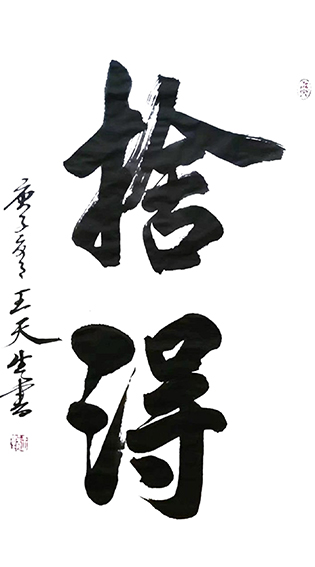 捨得
庚子冬月王天生書